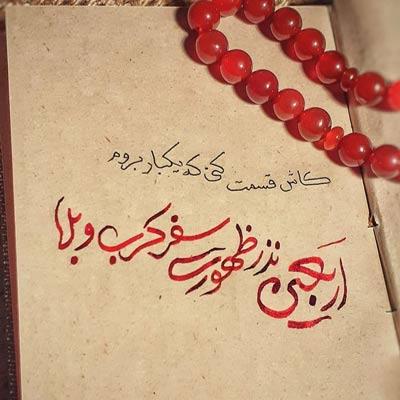 کاش قسمت کنی که یکبار بروم
اربعین نذر ظهورت سفر کرب و بلا